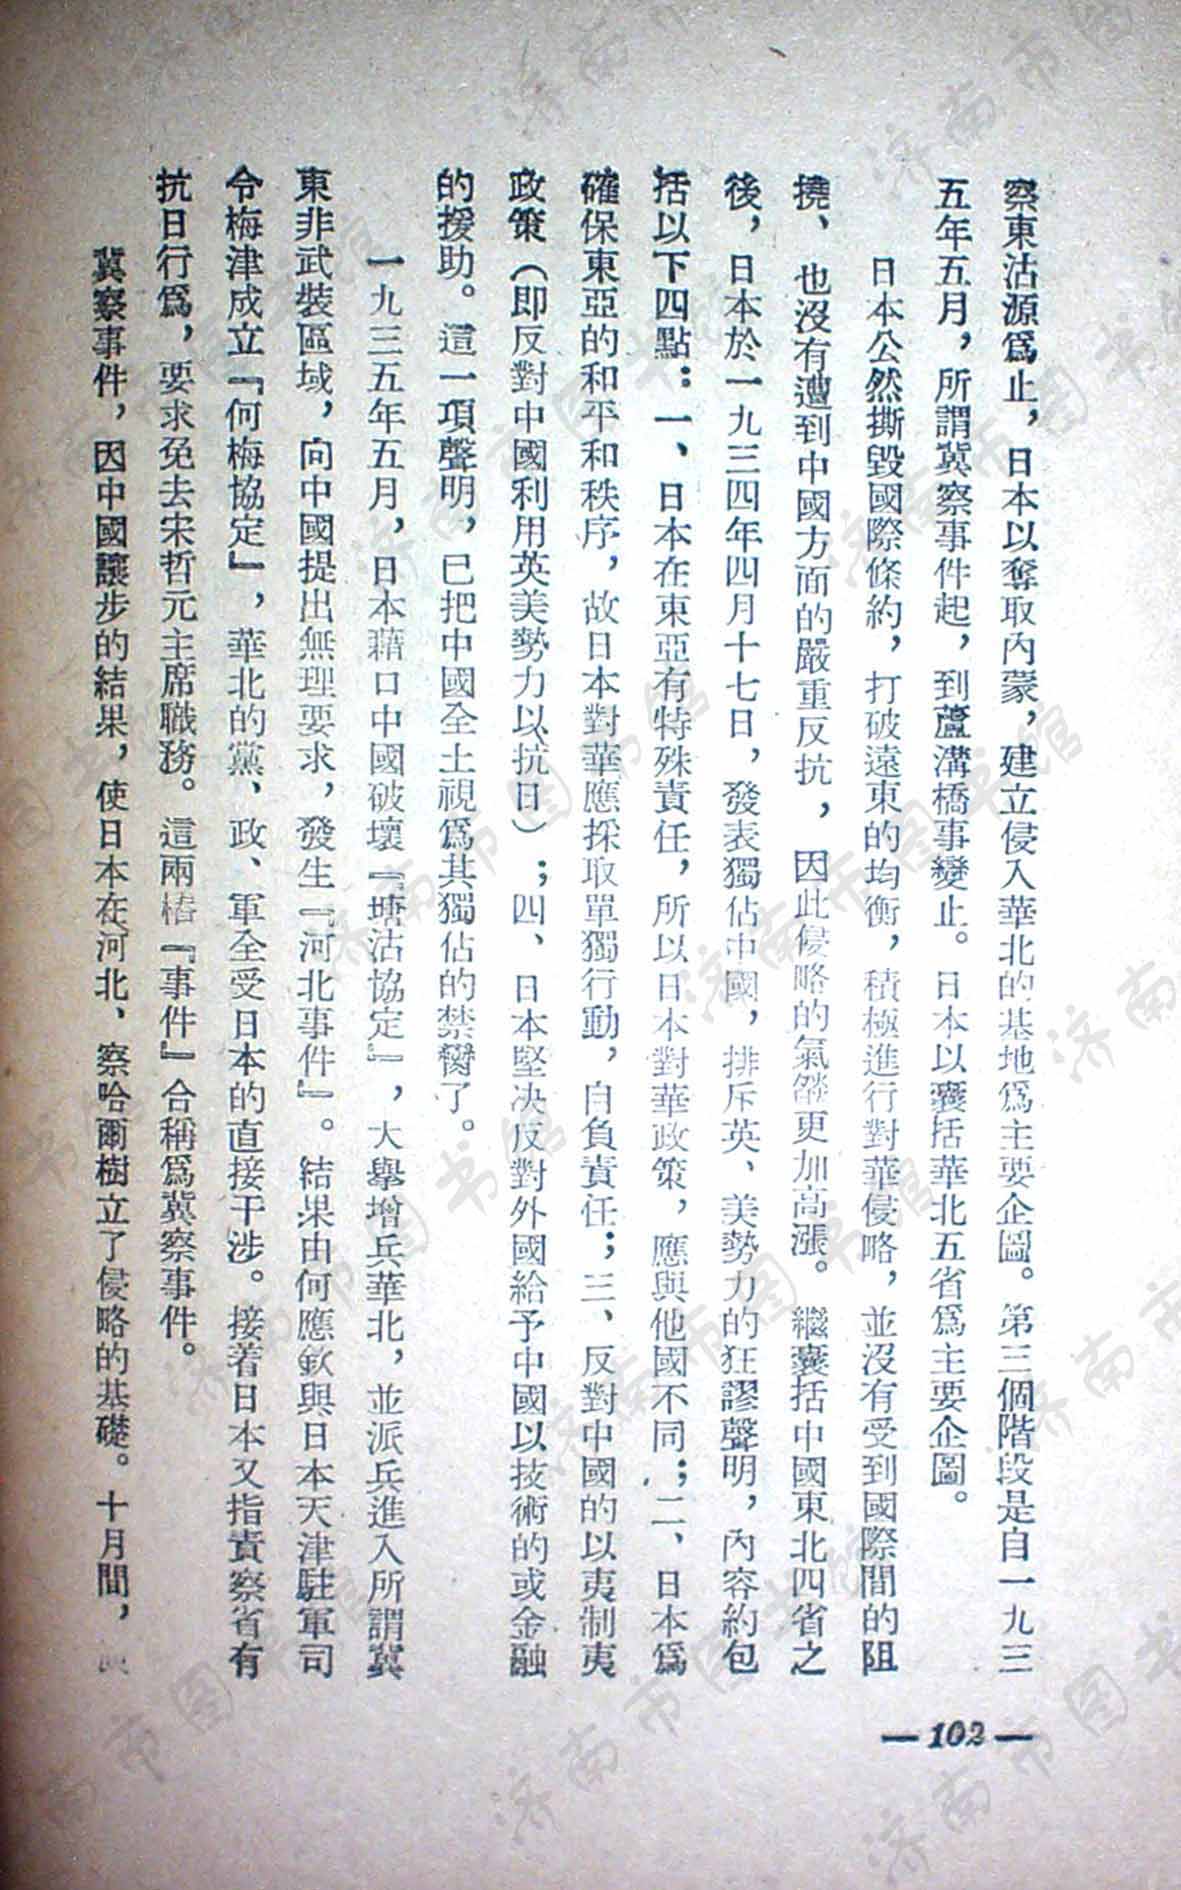 察東沽源爲止，日本以奪取內蒙，建立侵入華北的基地爲主要企圖。第三個階段是自一九三
五年五月，所謂冀察事件起，到蘆溝橋事變止。日本以囊括華北五省爲主要企圖。
日本公然撕毀國際條約，打破遠東的均衡，積極進行對華侵略，並沒有受到國際間的阻
撓、也沒有遭到中國方面的嚴重反抗，因此侵略的氣燄更加高漲。繼囊括中國東北四省之
後，日本於一九三四年四月十七日，發表獨佔中國，排斥英、美勢力的狂謬聲明，內容約包
括以下四點：一、日本在東亞有特殊責任，所以日本對華政策，應與他國不同；二、日本爲
確保東亞的和平和秩序，故日本對華應採取單獨行動，自負責任；三、反對中國的以夷制夷
政策（即反對中國利用英美勢力以抗日）；四、日本堅决反對外國給予中國以技術的或金融
的援助。這一項聲明，已把中國全土視爲其獨佔的禁臠了。
一九三五年五月，日本藉口中國破壞『塘沽協定』，大舉增兵華北，並派兵進入所謂冀
東非武裝區域，向中國提出無理要求，發生『河北事件』。結果由何應欽與日本天津駐軍司
令梅津成立『何梅協定』，華北的黨、政、軍全受日本的直接干涉。接着日本又指責察省有
抗日行爲，要求免去宋哲元主席職務。這兩樁『事件』合稱爲冀察事件。
冀察事件，因中國讓步的結果，使日本在河北、察哈爾樹立了侵略的基礎。十月間，
—102—
济南市图书馆